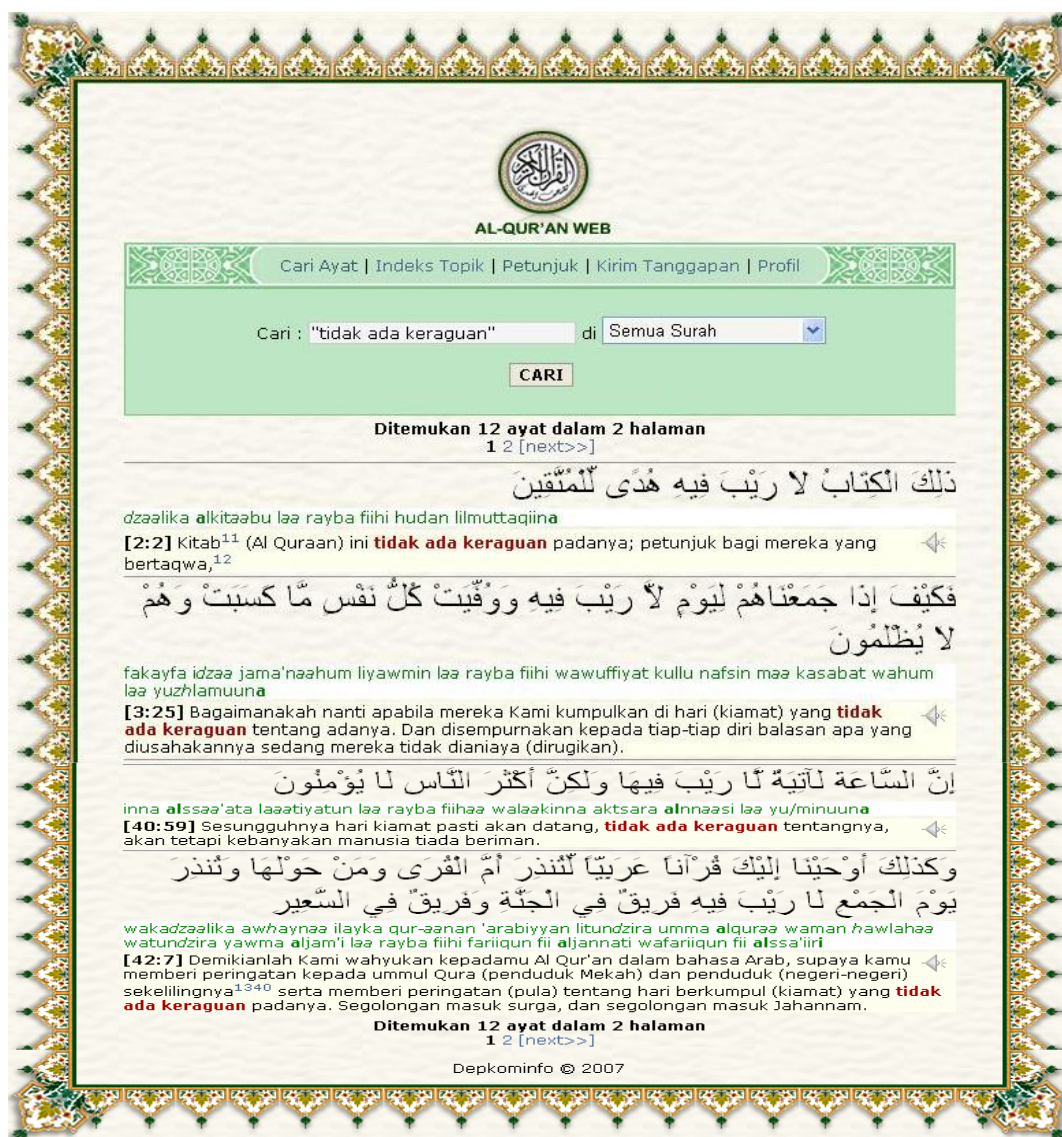 AL-QUR'AN WEB
Cari Ayat | Indeks Topik | Petunjuk | Kirim Tanggapan | Profil
Cari : "tidak ada keraguan" di Semua Surah
CARI
Ditemukan 12 ayat dalam 2 halaman
1 2 [next>>]
ذَلِكَ الْكِتَابُ لاَ رَيْبَ فِيهِ هُدًى لِّلْمُتَّقِينَ
dzaalika alkitaabu laa rayba fiihi hudan lilmuttaqiina
[2:2] Kitab11 (Al Quraan) ini tidak ada keraguan padanya; petunjuk bagi mereka yang
bertaqwa,12
فَكَيْفَ إِذَا جَمَعْنَاهُمْ لِيَوْمٍ لاَّ رَيْبَ فِيهِ وَوُفِّيَتْ كُلُّ نَفْسٍ مَّا كَسَبَتْ وَهُمْ
لاَ يُظْلَمُونَ
fakayfa idzaa jama'naahum liyawmin laa rayba fiihi wawuffiyat kullu nafsin maa kasabat wahum
laa yuzhlamuuna
[3:25] Bagaimanakah nanti apabila mereka Kami kumpulkan di hari (kiamat) yang tidak
ada keraguan tentang adanya. Dan disempurnakan kepada tiap-tiap diri balasan apa yang
diusahakannya sedang mereka tidak dianiaya (dirugikan).
إِنَّ السَّاعَةَ لَآتِيَةٌ لَّا رَيْبَ فِيهَا وَلَكِنَّ أَكْثَرَ النَّاسِ لَا يُؤْمِنُونَ
inna alssaa'ata laaatiyatun laa rayba fiihaa walaakinna aktsara alnnaasi laa yu/minuuna
[40:59] Sesungguhnya hari kiamat pasti akan datang, tidak ada keraguan tentangnya,
akan tetapi kebanyakan manusia tiada beriman.
وَكَذَلِكَ أَوْحَيْنَا إِلَيْكَ قُرْآناً عَرَبِيّاً لِّتُنذِرَ أُمَّ الْقُرَى وَمَنْ حَوْلَهَا وَتُنذِرَ
يَوْمَ الْجَمْعِ لَا رَيْبَ فِيهِ فَرِيقٌ فِي الْجَنَّةِ وَفَرِيقٌ فِي السَّعِيرِ
wakadzaalika awhaynaa ilayka qur-aanan 'arabiyyan litundzira umma alquraa waman hawlahaa
watundzira yawma aljam'i laa rayba fiihi fariiqun fii aljannati wafariiqun fii alssa'iiri
[42:7] Demikianlah Kami wahyukan kepadamu Al Qur'an dalam bahasa Arab, supaya kamu
memberi peringatan kepada ummul Qura (penduduk Mekah) dan penduduk (negeri-negeri)
sekelilingnya1340 serta memberi peringatan (pula) tentang hari berkumpul (kiamat) yang tidak
ada keraguan padanya. Segolongan masuk surga, dan segolongan masuk Jahannam.
Ditemukan 12 ayat dalam 2 halaman
1 2 [next>>]
Depkominfo © 2007